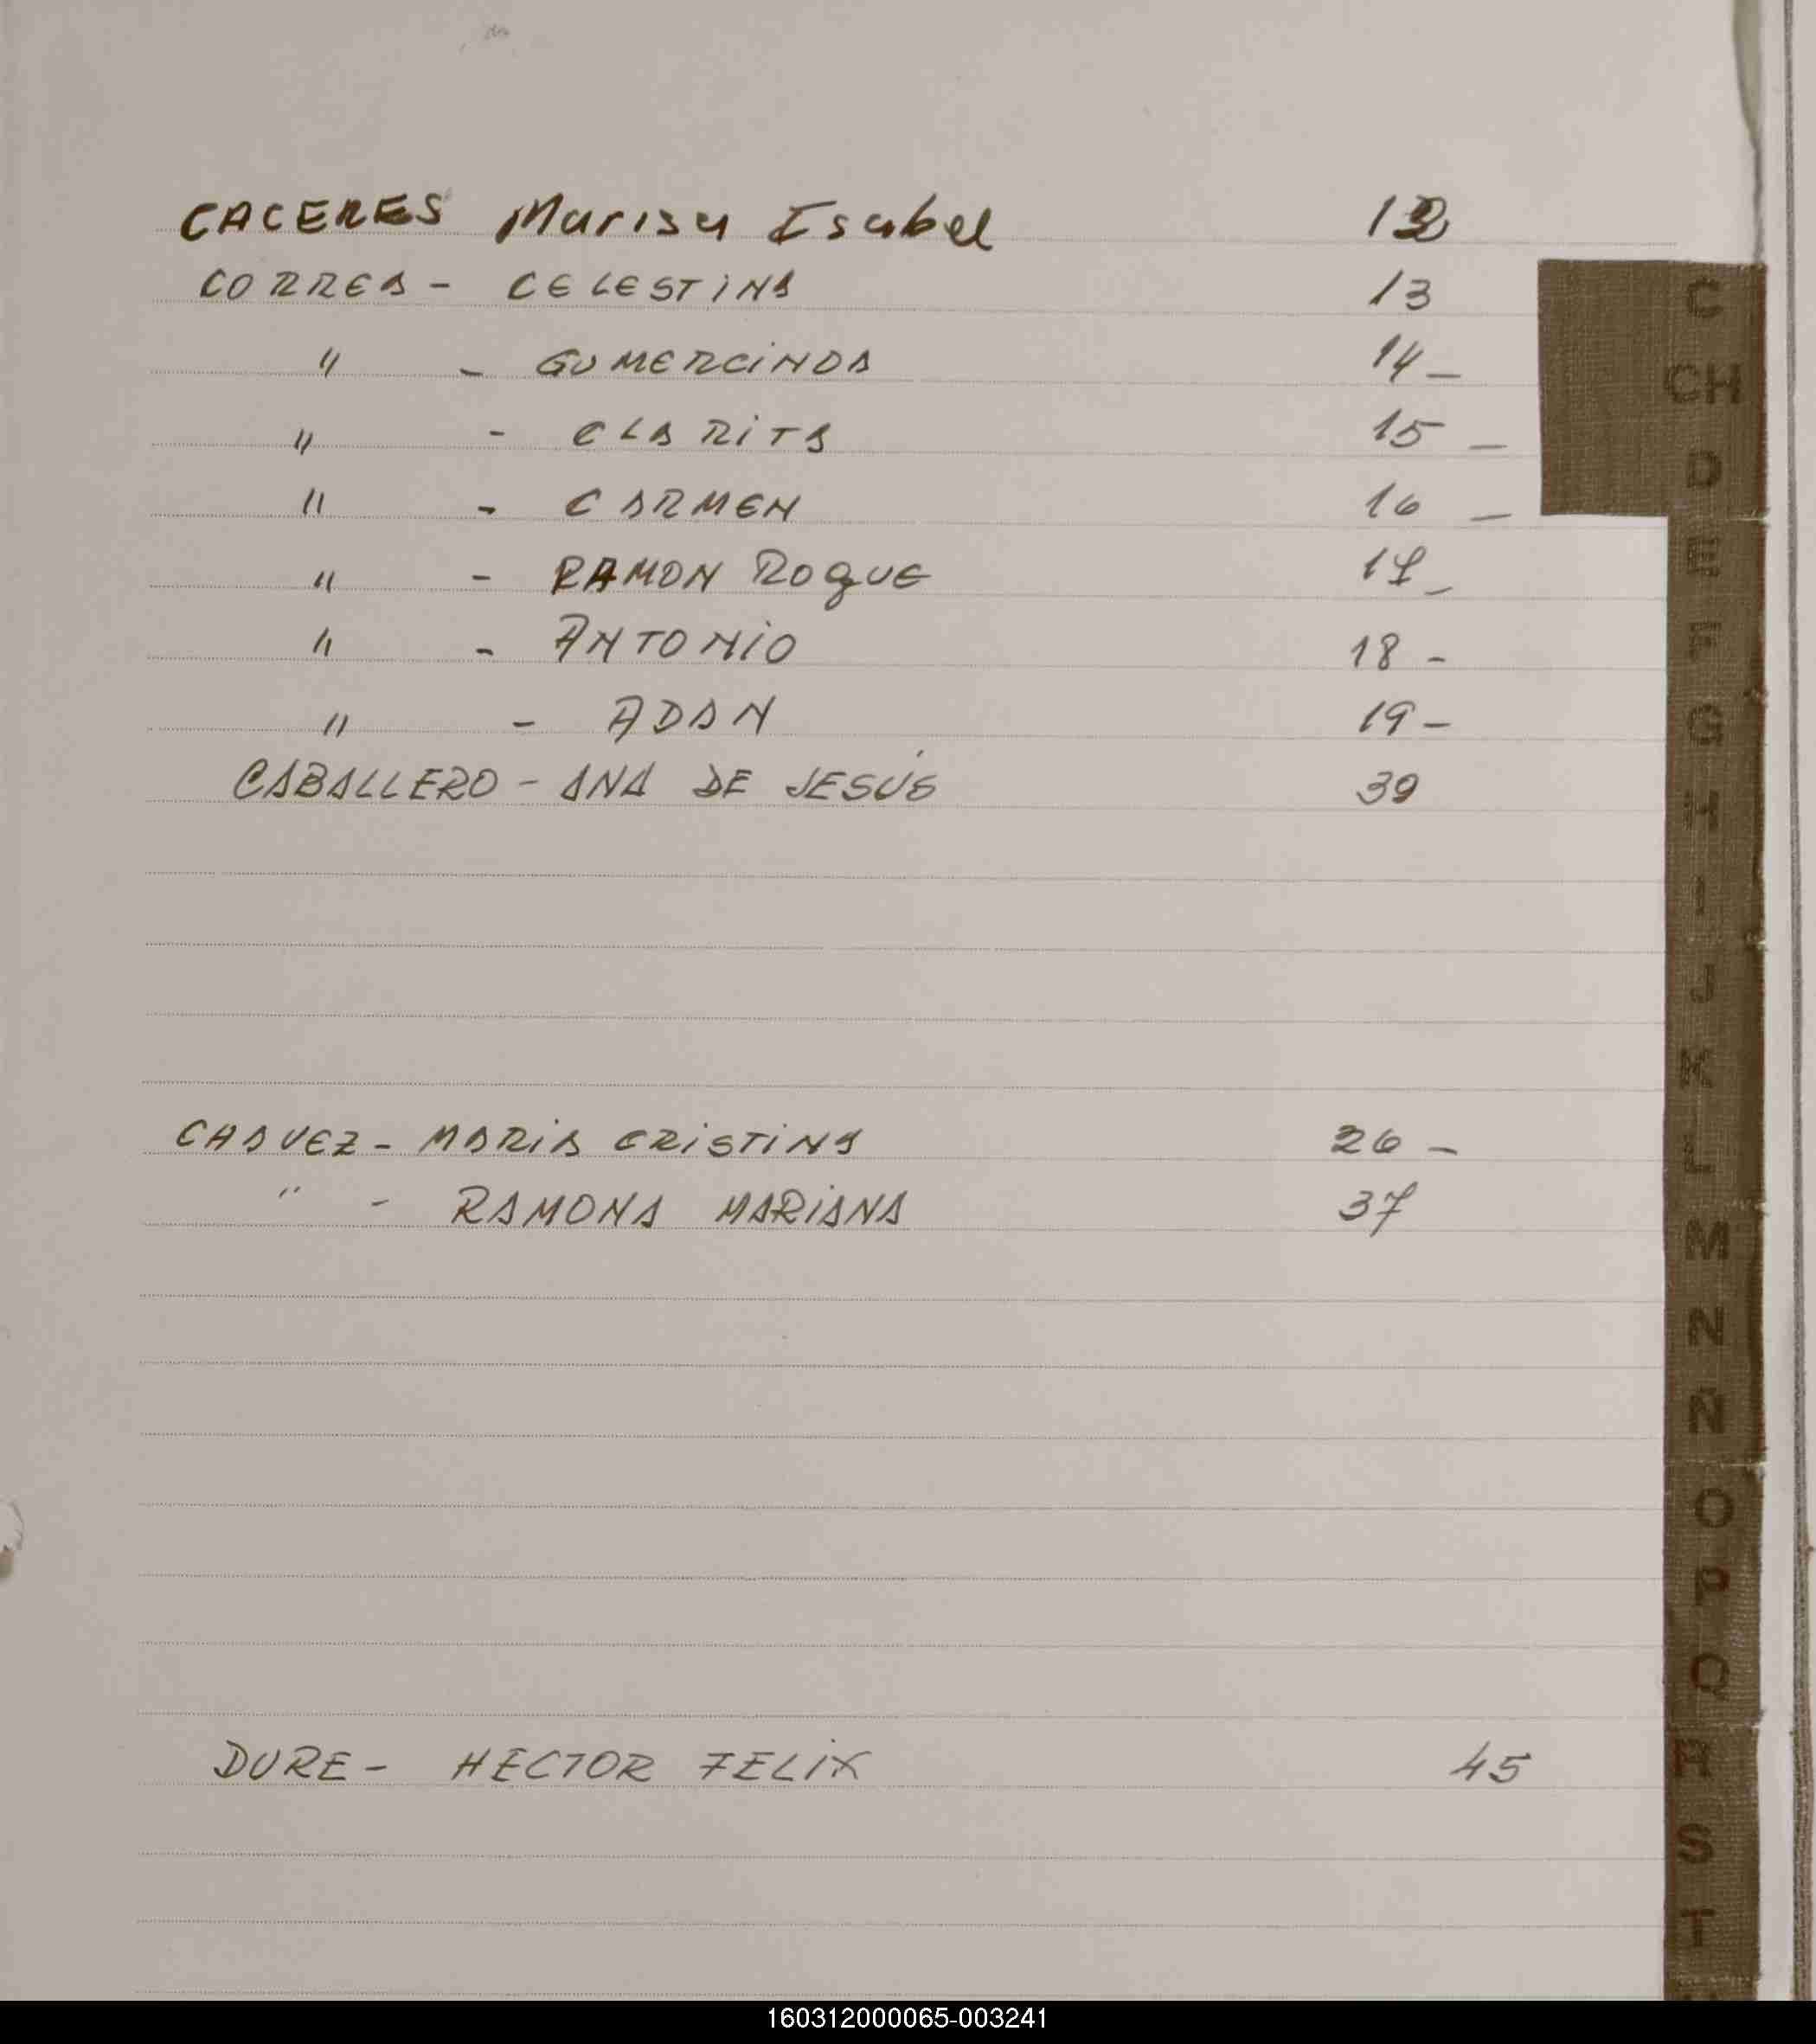 CACERES Marisa Isabel 12
CORREA - CELESTINA 13
" - GUMERCINDA 14 -
" - CLARITA 15 -
" - CARMEN 16 -
" - RAMON ROQUE 17 -
" - ANTONIO 18 -
" - ADAN 19 -
CABALLERO - ANA DE JESÚS 39
CHAVEZ - MARIA CRISTINA 26 -
" - RAMONA MARIANA 37
DURE - HECTOR FELIX 45
C
CH
D
E
F
G
H
I
J
K
L
M
N
Ñ
O
P
Q
R
S
T
160312000065-003241